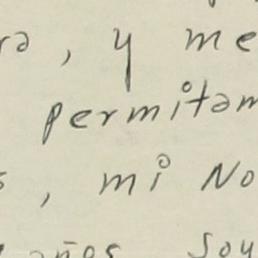 ra, y me
permitam
s, mi No
años soy